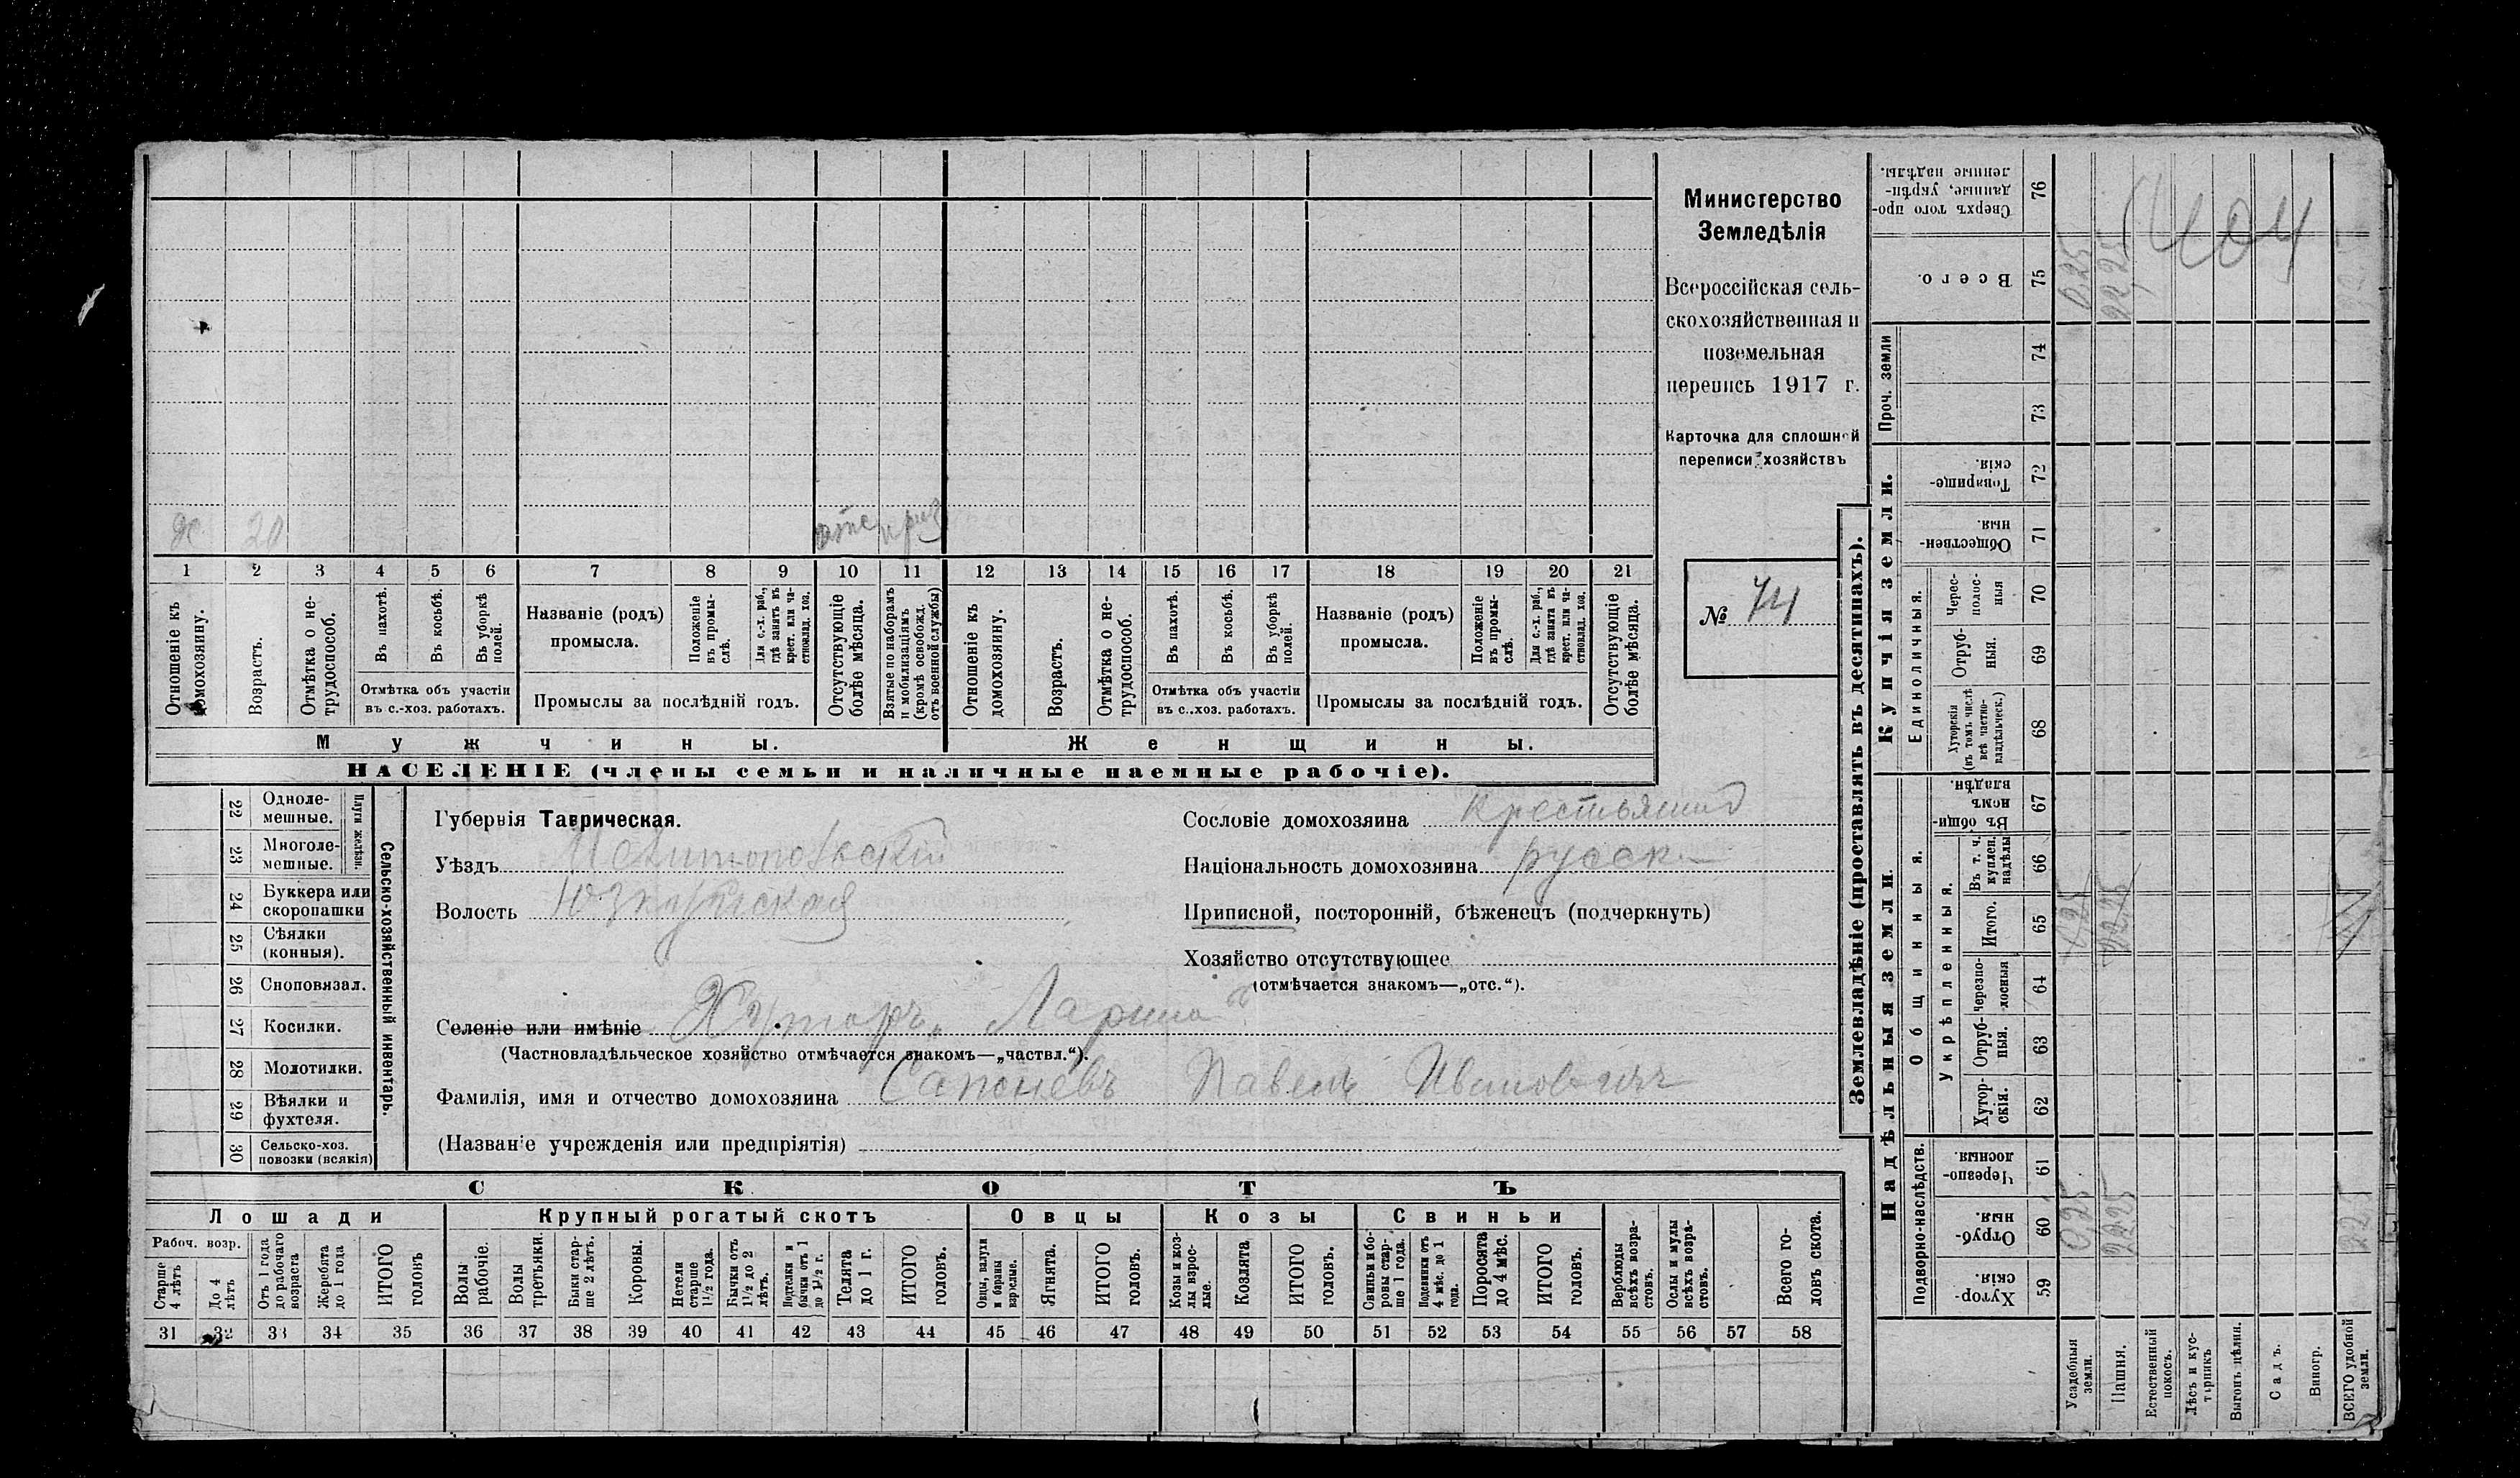 Министерство
Земледѣлія
Всероссійская сель-
скохозяйственная и
поземельная
перепись 1917 г.
Карточка для сплошной
переписи хозяйствъ
№ 74
х. 20 отс приз
1 2 3 4 5 6 7 8 9 10 11 12 13 14 15 16 17 18 19 20 21
Отношеніе къ домохозяину.
Возрастъ.
Отмѣтка о не-трудоспособ.
Въ пахотѣ.
Въ косьбѣ.
Въ уборкѣ полей.
Отмѣтка объ участіи
въ с.-хоз. работахъ.
Названіе (родъ)
промысла.
Положеніе въ промы-слѣ.
Для с.-х. раб., гдѣ занятъ въ крест. или ча-стновлад. хоз.
Промыслы за послѣдній годъ.
Отсутствующіе болѣе мѣсяца.
Взятые по наборамъ и мобилизаціямъ (кромѣ освобожд. отъ военной службы)
Отношеніе къ домохозяину.
Возрастъ.
Отмѣтка о не-трудоспособ.
Въ пахотѣ.
Въ косьбѣ.
Въ уборкѣ полей.
Отмѣтка объ участіи
въ с.-хоз. работахъ.
Названіе (родъ)
промысла.
Положеніе въ промы-слѣ.
Для с.-х. раб., гдѣ занята въ крест. или ча-стновлад. хоз.
Промыслы за послѣдній годъ.
Отсутствующіе болѣе мѣсяца.
Мужчины. Женщины.
НАСЕЛЕНІЕ (члены семьи и наличные наемные рабочіе).
Сельско-хозяйственный инвентарь.
Плуги желѣзн.
22 Одноле-мешные.
23 Многоле-мешные.
24 Буккера или скоропашки
25 Сѣялки (конныя).
26 Сноповязал.
27 Косилки.
28 Молотилки.
29 Вѣялки и фухтеля.
30 Сельско-хоз. повозки (всякія)
Губернія Таврическая.
Уѣздъ Мелитопольский
Волость Юзкуйская
Селеніе или имѣніе Хуторъ
(Частновладѣльческое хозяйство отмѣчается знакомъ—„частвл.“).
Фамилія, имя и отчество домохозяина Сапоневъ Павелъ Ивановичъ
(Названіе учрежденія или предпріятія)
Сословіе домохозяина крестьянин
Національность домохозяина русск
Приписной, посторонній, бѣженецъ (подчеркнуть)
Хозяйство отсутствующее
(отмѣчается знакомъ—„отс.“).
СКОТЪ
Лошади Крупный рогатый скотъ Овцы Козы Свиньи
Рабоч. возр.
Старше 4 лѣтъ
До 4 лѣтъ
Отъ 1 года до рабочаго возраста
Жеребята до 1 года
ИТОГО головъ
Волы рабочіе.
Волы третьяки.
Быки стар-ше 2 лѣтъ.
Коровы.
Нетели старше 1½ года.
Бычки отъ 1½ до 2 лѣтъ.
Подтелки и бычки отъ 1 до 1½ г.
Телята до 1 г.
ИТОГО головъ.
Овцы, валухи и бараны взрослые.
Ягнята.
ИТОГО головъ.
Козы и коз-лы взрос-лые.
Козлята
ИТОГО головъ.
Свиньи и бо-ровы стар-ше 1 года.
Подсвинки отъ 4 мѣс. до 1 года.
Поросята до 4 мѣс.
ИТОГО головъ.
Верблюды всѣхъ возра-стовъ.
Ослы и мулы всѣхъ возра-стовъ.
Всего го-ловъ скота.
31 32 33 34 35 36 37 38 39 40 41 42 43 44 45 46 47 48 49 50 51 52 53 54 55 56 57 58
Землевладѣніе (проставлять въ десятинахъ).
Надѣльныя земли. Купчія земли. Проч. земли
Подворно-наслѣдств.
Общинныя.
Укрѣпленныя.
Единоличныя.
Хутор-скія. 59
Отруб-ныя. 60
Черезпо-лосныя. 61
Хутор-скія. 62
Отруб-ныя. 63
Черезпо-лосныя 64
Итого. 65
Въ т. ч. куплен. надѣлы 66
Въ общи-номъ владѣн. 67
Хуторскія (въ томъ числѣ всѣ частно-владѣльческ.) 68
Отруб-ныя. 69
Черес-полос-ныя 70
Обществен-ныя. 71
Товарище-скія. 72
73
74
Всего. 75
Сверхъ того про-данные, укрѣп-ленные надѣлы. 76
Усадебныя земли. 0,25 0,25 0,25
Пашня. 22,25 22,25 22,25
Естественный покосъ.
Лѣсъ и кус-тарникъ
Выгонъ цѣлин.
Садъ.
Виногр.
ВСЕГО удобной земли. 22,5
404